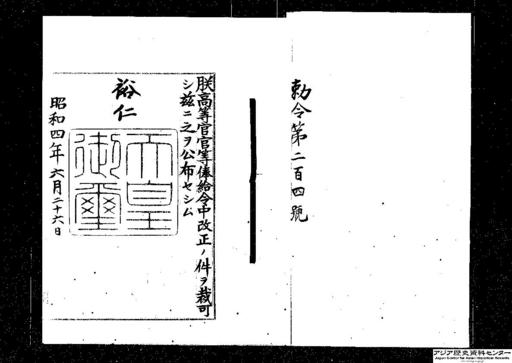 勅令第二百四號
朕高等官官等俸給令中改正ノ件ヲ裁可
シ玆ニ之ヲ公布セシム
裕仁
天皇
御璽
昭和四年六月二十六日
アジア歴史資料センター
Japan Center for Asian Historical Records